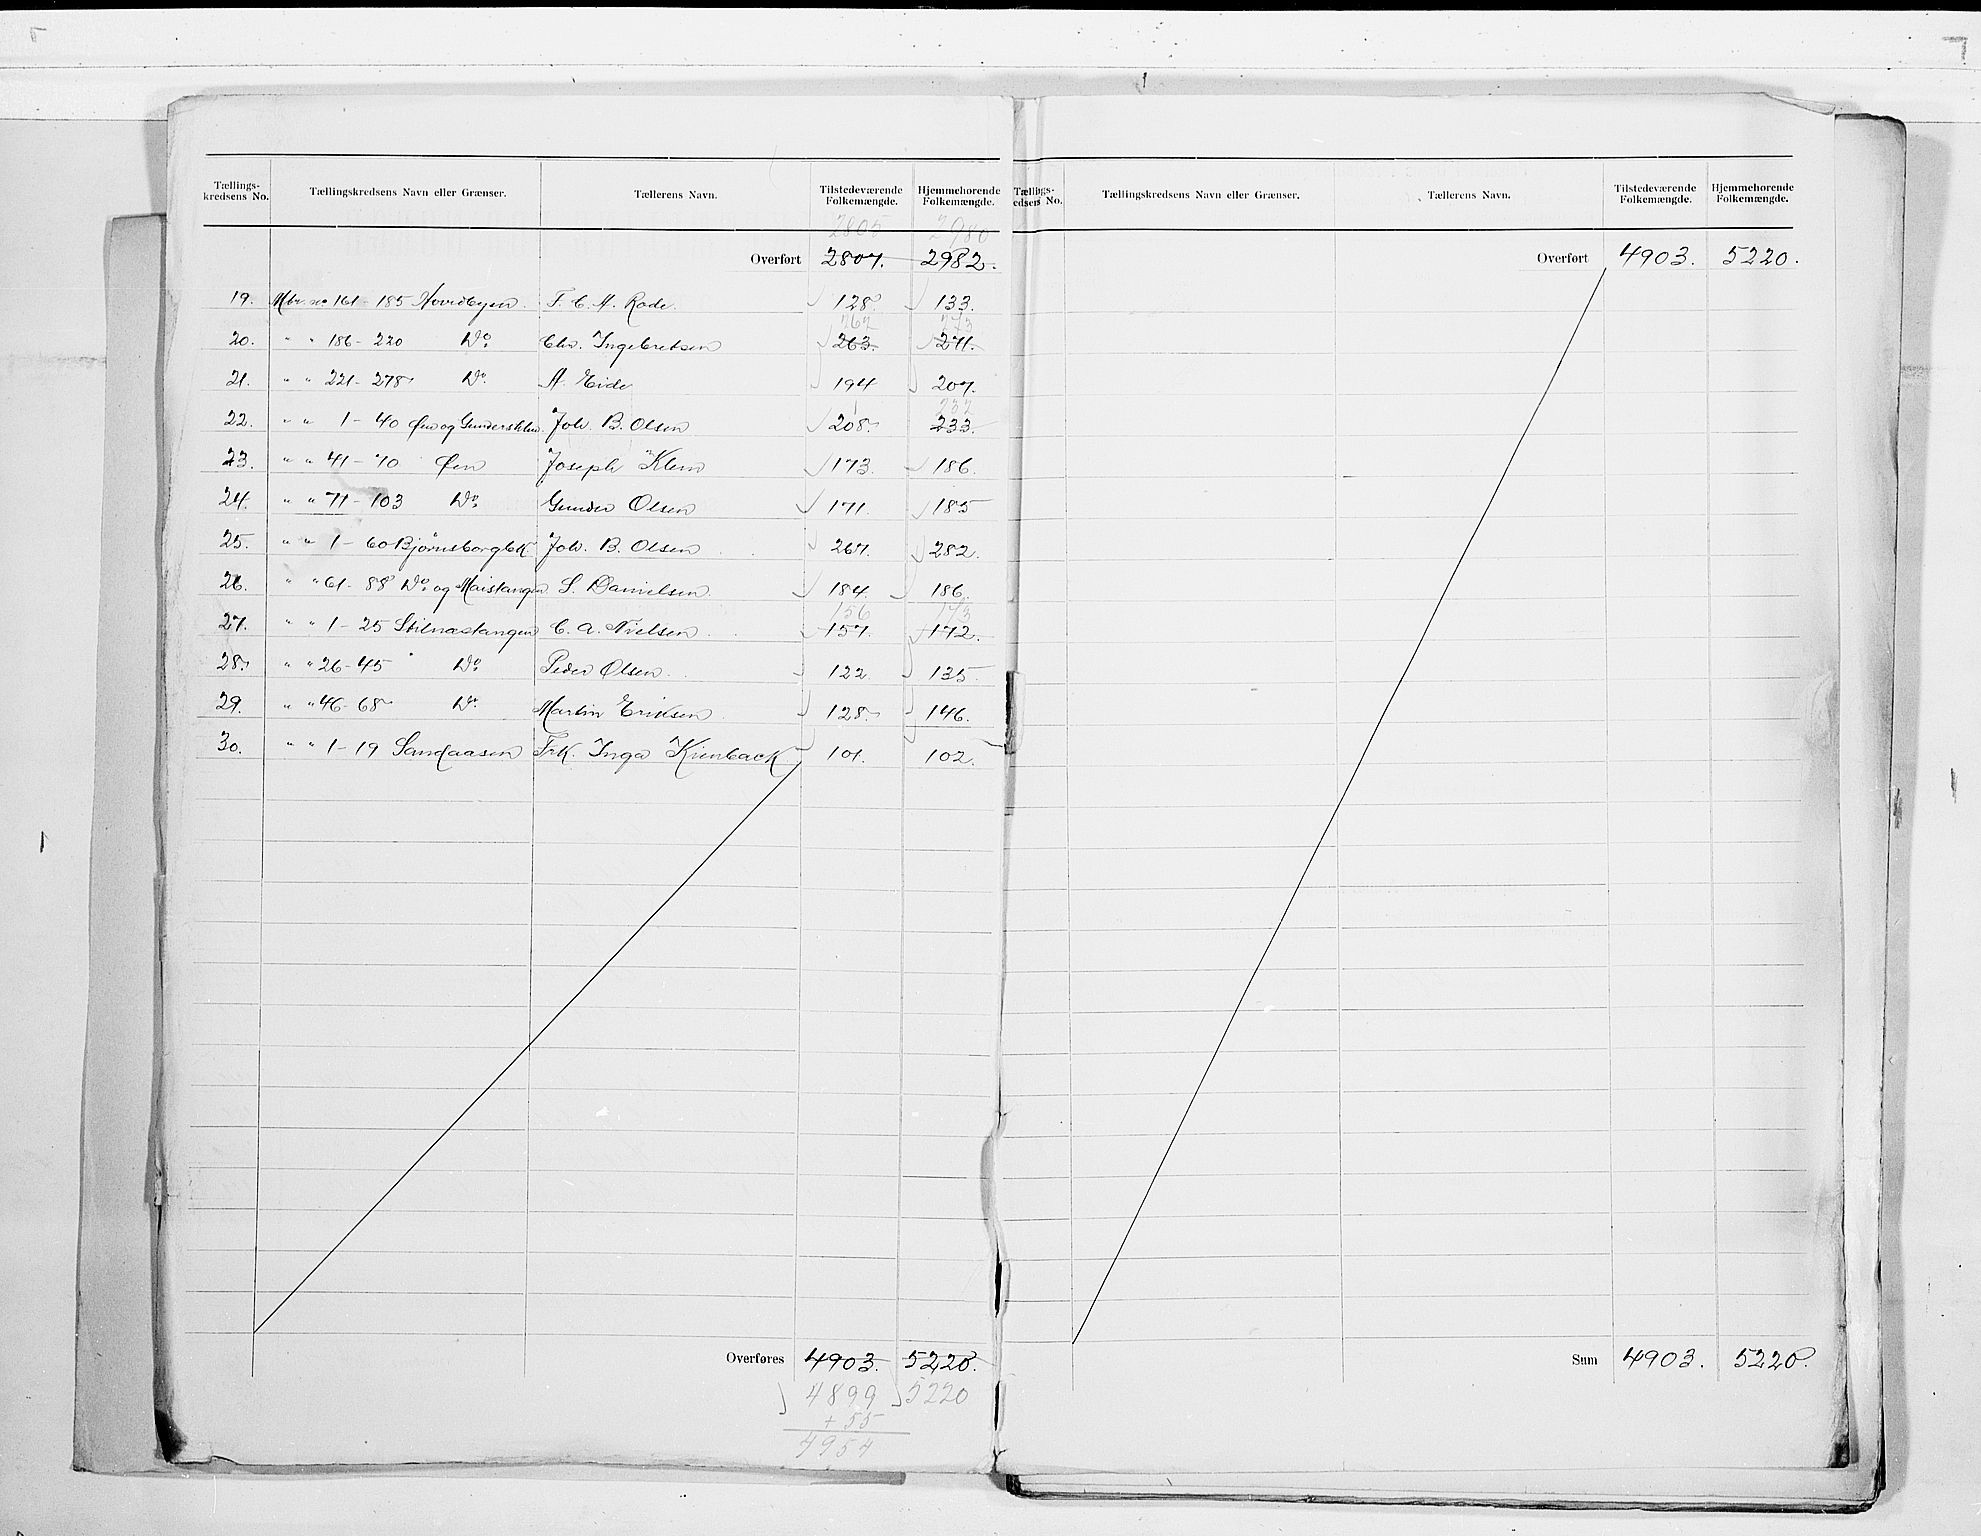 Tællings-kredsens No. Tællingskredsens Navn eller Grænser. Tællerens Navn. Tilstedeværende Folkemængde. Hjemmehørende Folkemængde.
2805 2980
Overført 2807. 2982.
19. Mtr. no 161 - 185 Hovedbyen. F. C. A. Rode. 128. 133.
262 273
20. " " 186 - 220 Do. Chr. Ingebretsen 263. 271.
21. " " 221 - 278 Do. A. Eide 194 207.
232
22. " " 1 - 40 Øen og Gundersholm. Joh. B. Olsen 208. 233.
23. " " 41 - 70 Øen Joseph Klem 173. 186.
24. " " 71 - 103 Do. Gunder Olsen 171. 185
25. " " 1 - 60 Bjørnsborgbk. Joh. B. Olsen 267. 282.
26. " " 61 - 88 Do. og Maistangen S. Danielsen. 184. 186.
156 173
27. " " 1 - 25 Stilnæstangen C. A. Nielsen. 157. 172.
28. " " 26 - 45 Do. Peder Olsen. 122. 135.
29. " " 46 - 68 Do. Martin Eriksen 128. 146.
30. " " 1 - 19 Sandaasen Frk. Inga Kienback 101. 102.
Overføres 4903. 5220.
4899 5220
+ 55
4954
Tællings-kredsens No. Tællingskredsens Navn eller Grænser. Tællerens Navn. Tilstedeværende Folkemængde. Hjemmehørende Folkemængde.
Overført 4903. 5220.
Sum 4903. 5220.